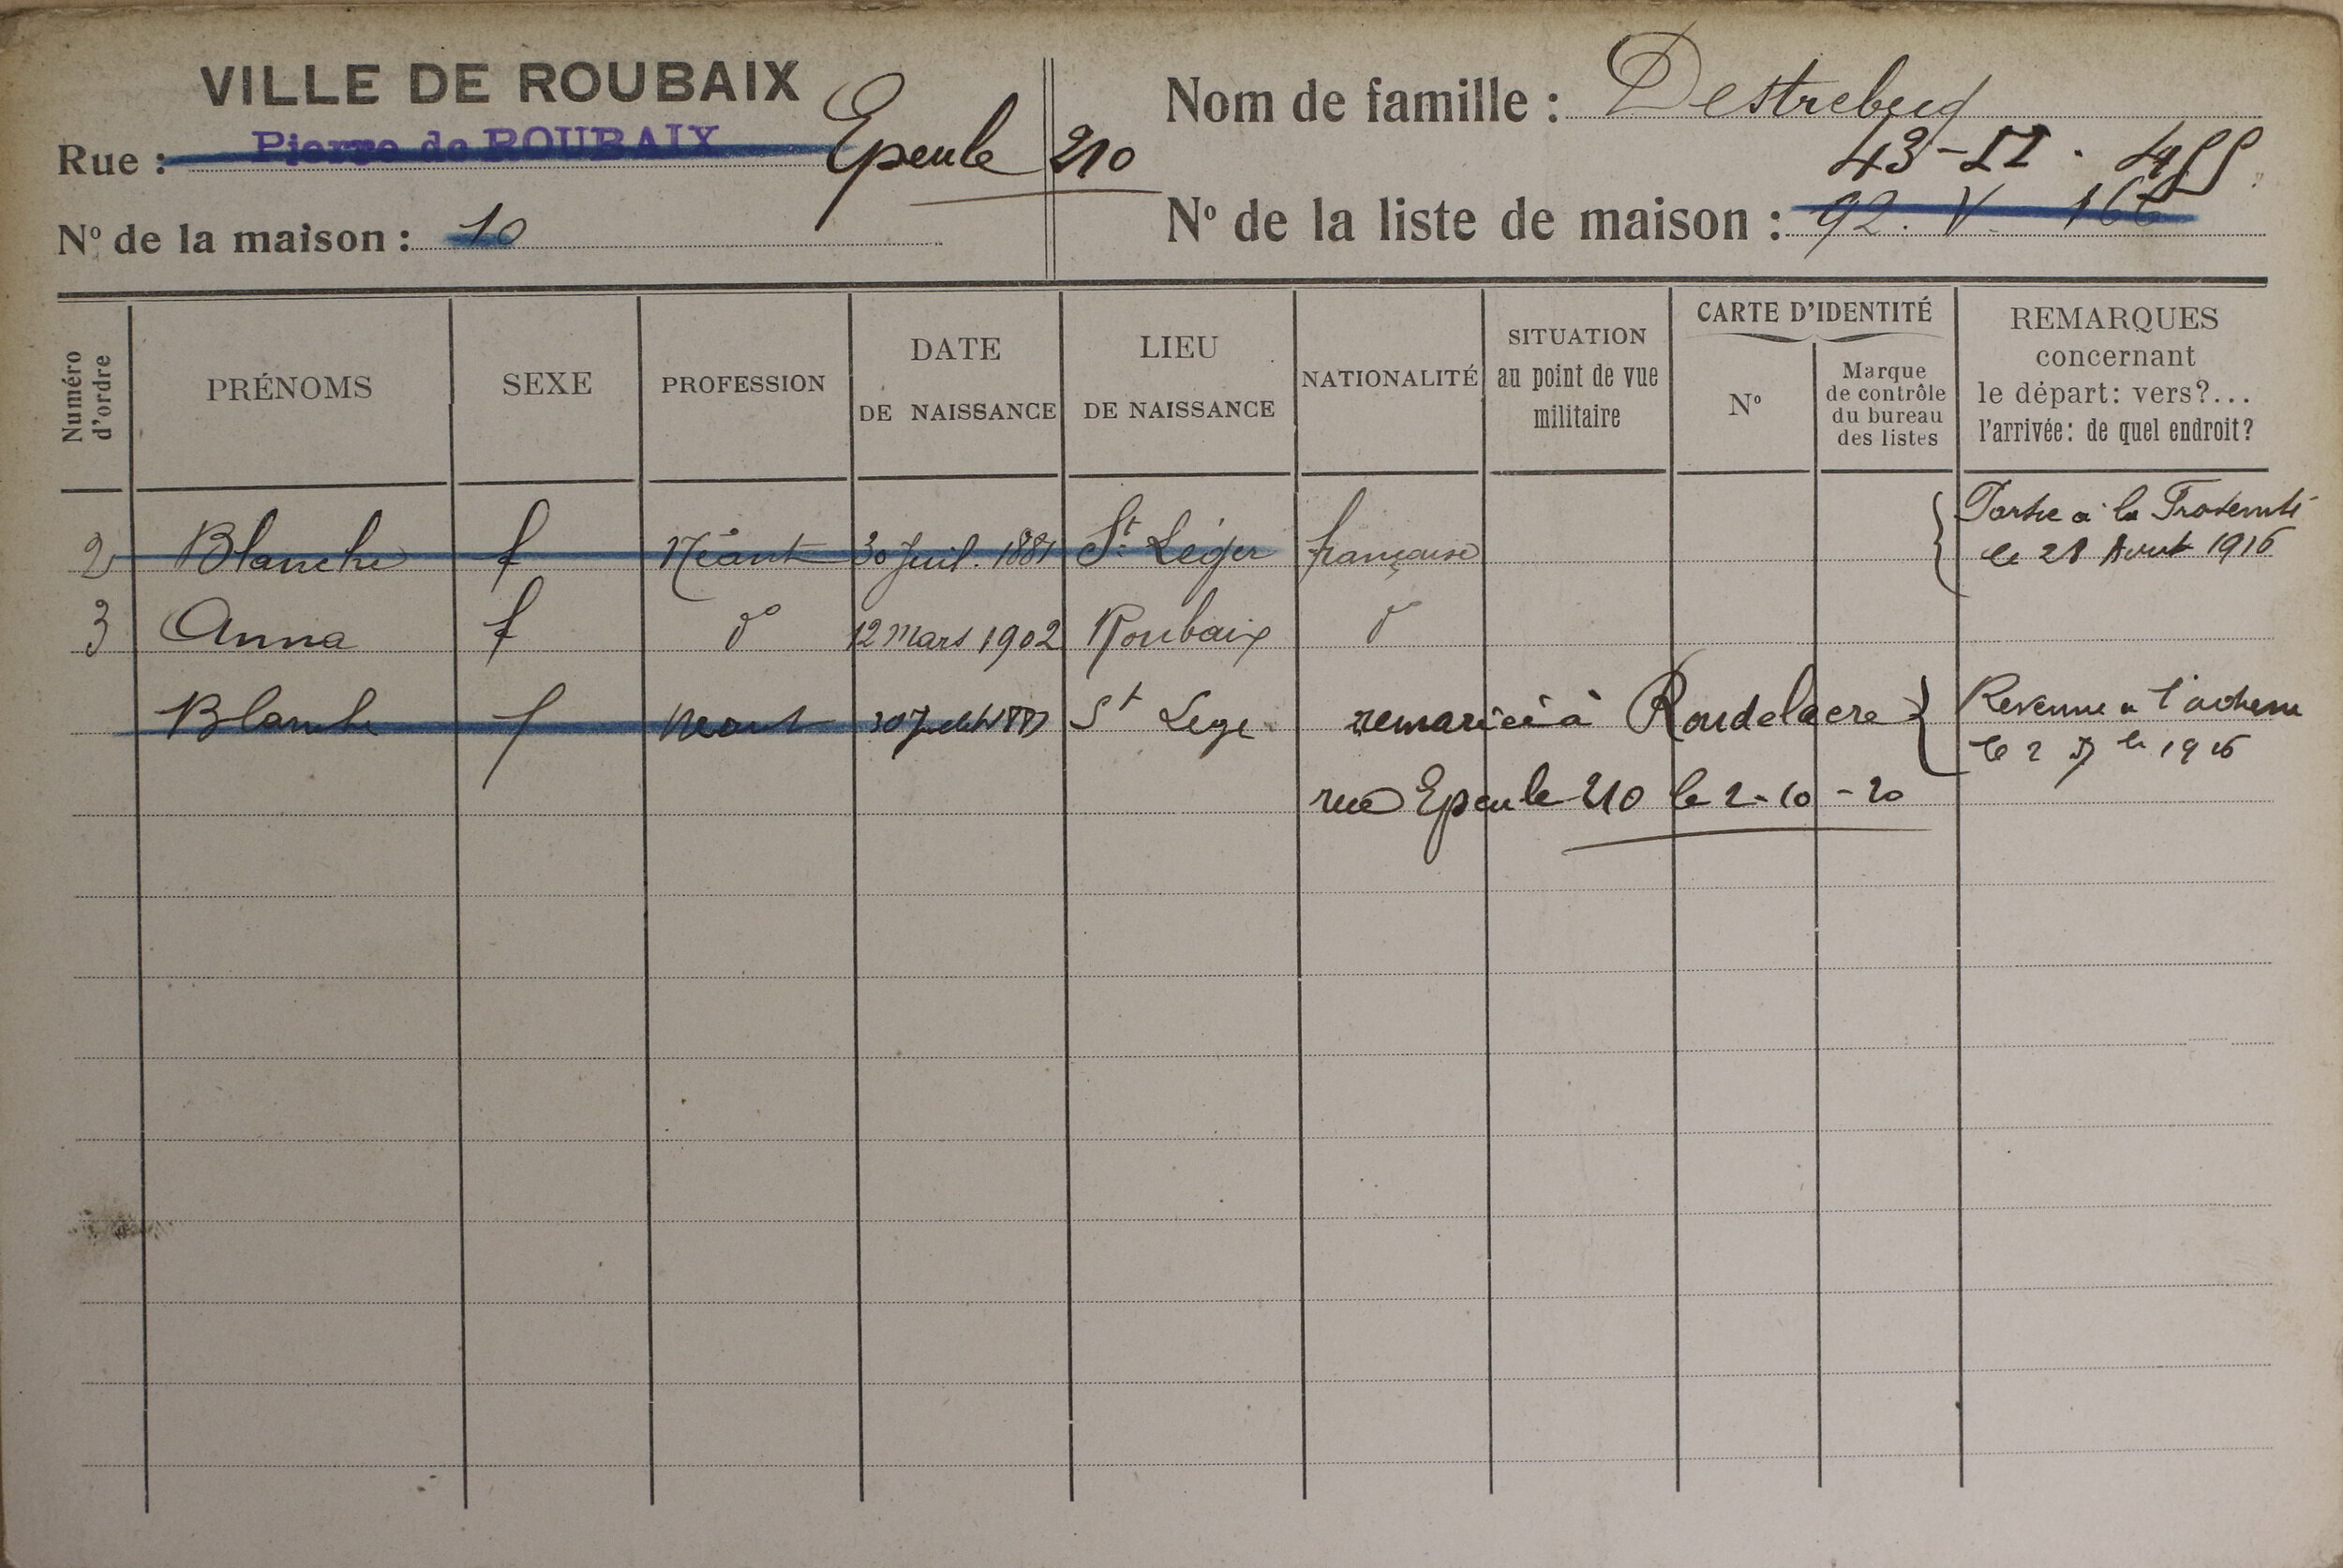 VILLE DE ROUBAIX
Rue : Pierre de ROUBAIX Epeule 210
N° de la maison : 10
Nom de famille : Destrebecq
43-II. 455
N° de la liste de maison : 92. V. 166
Numéro d'ordre
PRÉNOMS
SEXE
PROFESSION
DATE DE NAISSANCE
LIEU DE NAISSANCE
NATIONALITÉ
SITUATION au point de vue militaire
CARTE D'IDENTITÉ
N°
Marque de contrôle du bureau des listes
REMARQUES concernant le départ: vers?... l'arrivée: de quel endroit?
2 Blanche f Néant 30 Juil. 1881 St Léger française Partie à la Fraternité
le 28 Aout 1916
3 Anna f d° 12 Mars 1902 Roubaix d°
Blanche f Neant 30 Juillet St Lege remariée à Revenue a
le 2 1916
rue Epeule 210 le 2-10-20